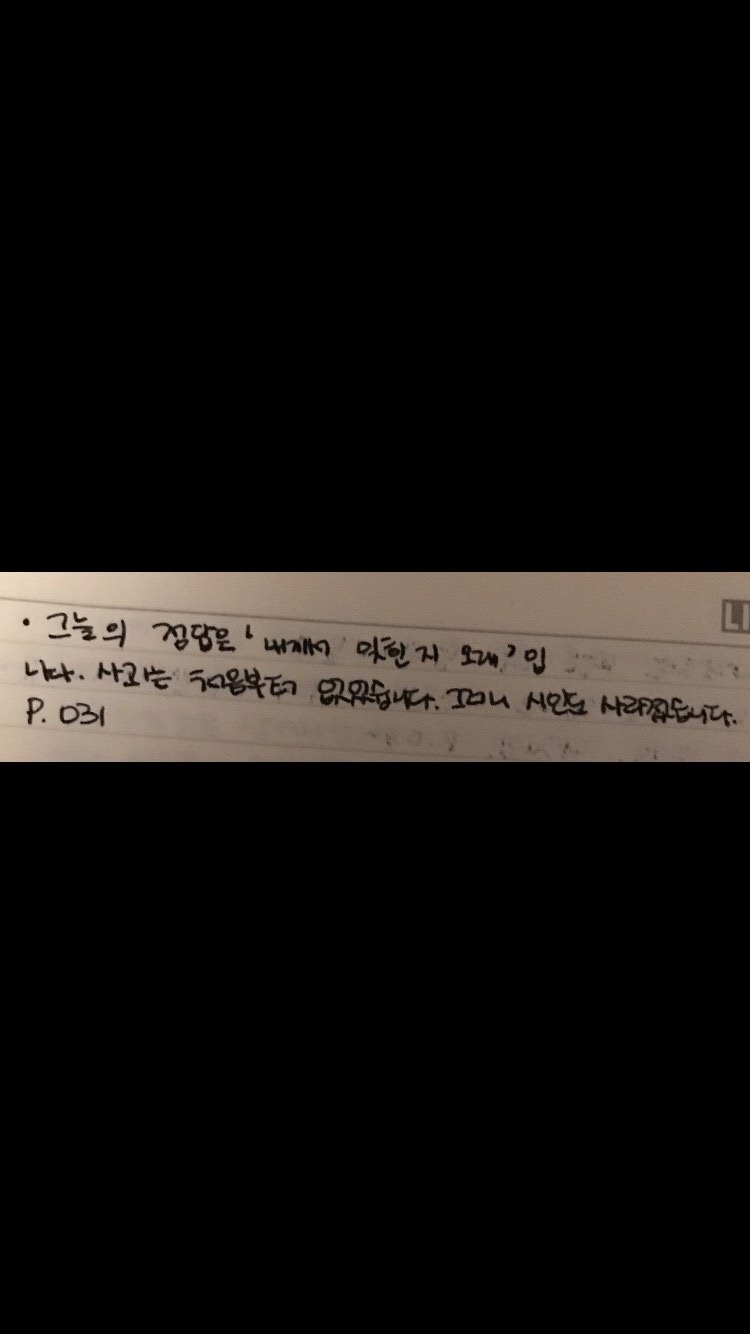 · 그늘의 정답은 '내게서 잊힌 지 오래' 입
니다. 사과는 처음부터 없었습니다. 그러니 시인도 사라졌습니다.
P. 031